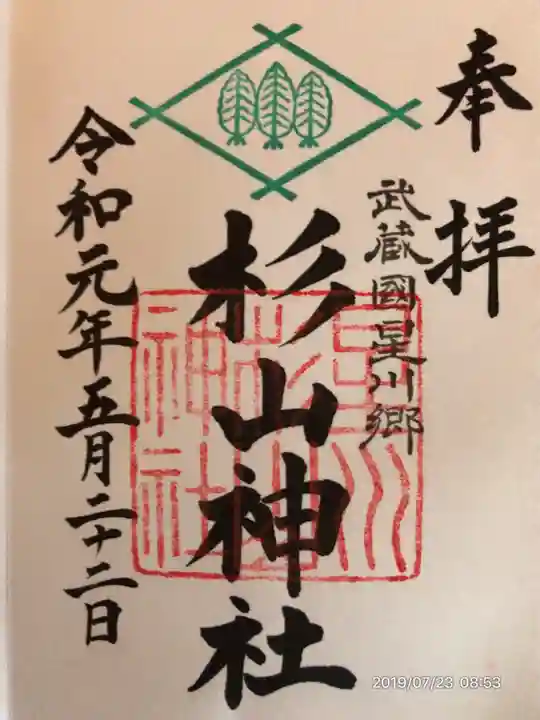 奉拝
武蔵國星川郷
杉山神社
星川杉山神社
令和元年五月二十二日
2019/07/23 08:53